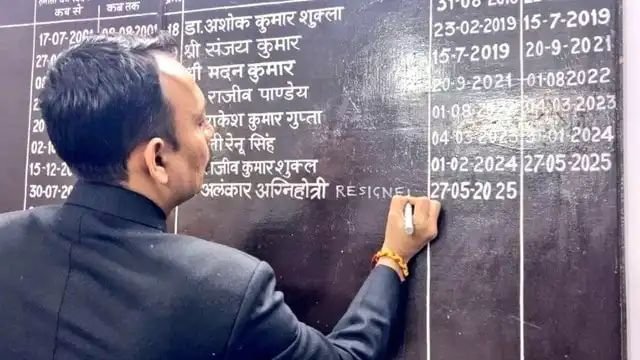 कब से कब तक
17-07-2001 08-08-2001
18 डा.अशोक कुमार शुक्ला 23-02-2019
श्री संजय कुमार 23-02-2019 15-7-2019
श्री मदन कुमार 15-7-2019 20-9-2021
राजीव पाण्डेय 20-9-2021 01-08-2022
राकेश कुमार गुप्ता 01-08-2022 04-03-2023
रेनू सिंह 04-03-2023 -01-2024
15-12- राजीव कुमार शुक्ल 01-02-2024 27-05-2025
30-07- अलंकार अग्निहोत्री RESIGNE 27-05-2025